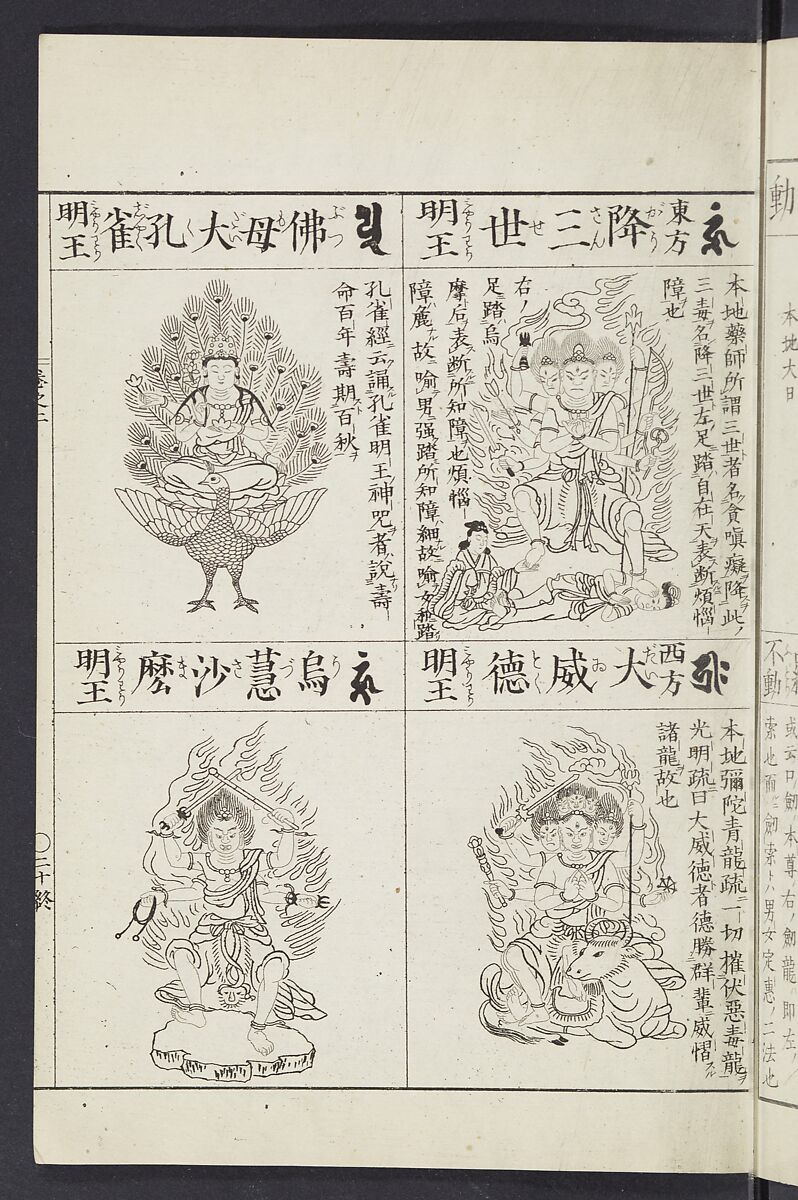 東方降三世明王
本地藥師所謂三世者名貪嗔癡降此ノ
三毒ヲ名降三世左足踏自在天表断煩惱
障也
右ノ
足踏烏
摩后表断所知障也煩惱
障麁故喻男强踏所知障細故喻女
佛母大孔雀明王
孔雀經云誦孔雀明王神咒者說壽
命百年壽期百秋
西方大威德明王
本地彌陀青龍疏一切摧伏惡毒龍ヲ
光明疏曰大威德者德勝群輩威慴
諸龍故也
烏蒭沙麽明王
二十終
動
本地大日
不動
或云口劔本尊右ノ劔龍即左ノ
索也而劔索ハ男女定惠ノ二法也